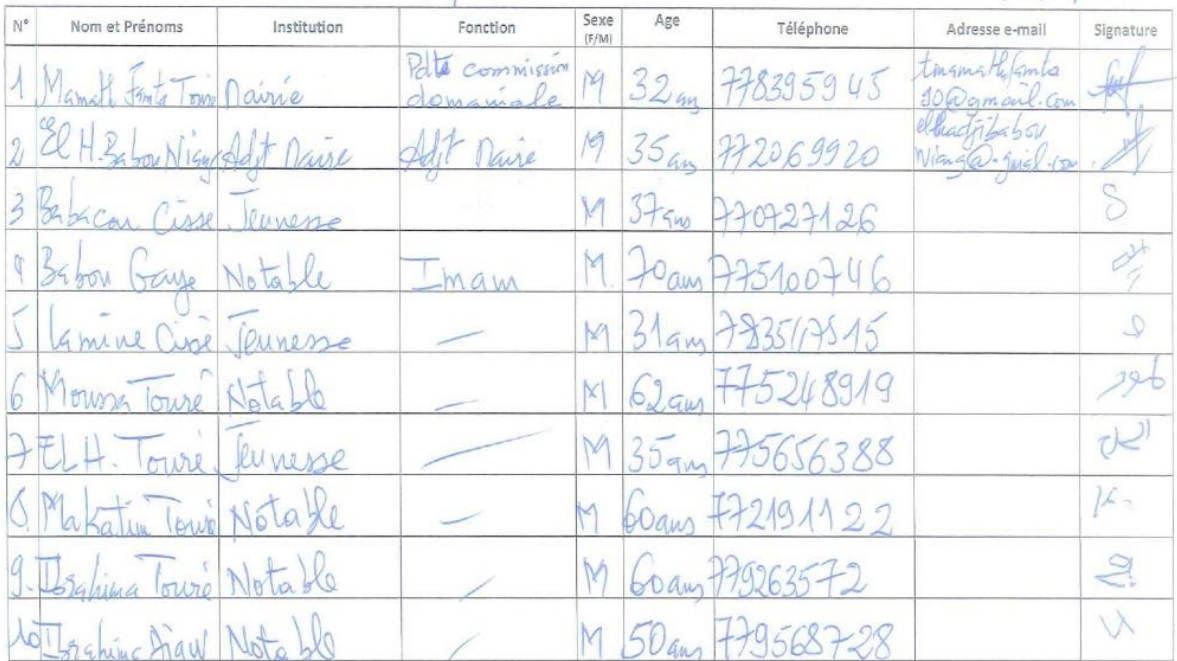 N° Nom et Prénoms Institution Fonction Sexe (F/M) Age Téléphone Adresse e-mail Signature
1 Mamath Fanta Touré Mairie Pdte commission domaniale M 32 ans 778395945 tmamathfanta90@gmail.com
2 El H. Babou Niang Adjt Maire Adjt Maire M 35 ans 772069920 elhadjibabou
3 Babacar Cissé Jeunesse M 37 ans 770727126
4 Babou Gaye Notable Imam M. 70 ans 775100746
5 Lamine Cissé Jeunesse — M 31 ans
6 Moussa Touré Notable — M 62 ans 775248919
7 EL H. Touré Jeunesse — M 35 ans 775656388
8. Touré Notable — M 60 ans 772191122
9. Ibrahima Touré Notable — M 60 ans 779263572
10 Ibrahima Notable — M 50 ans 779568728